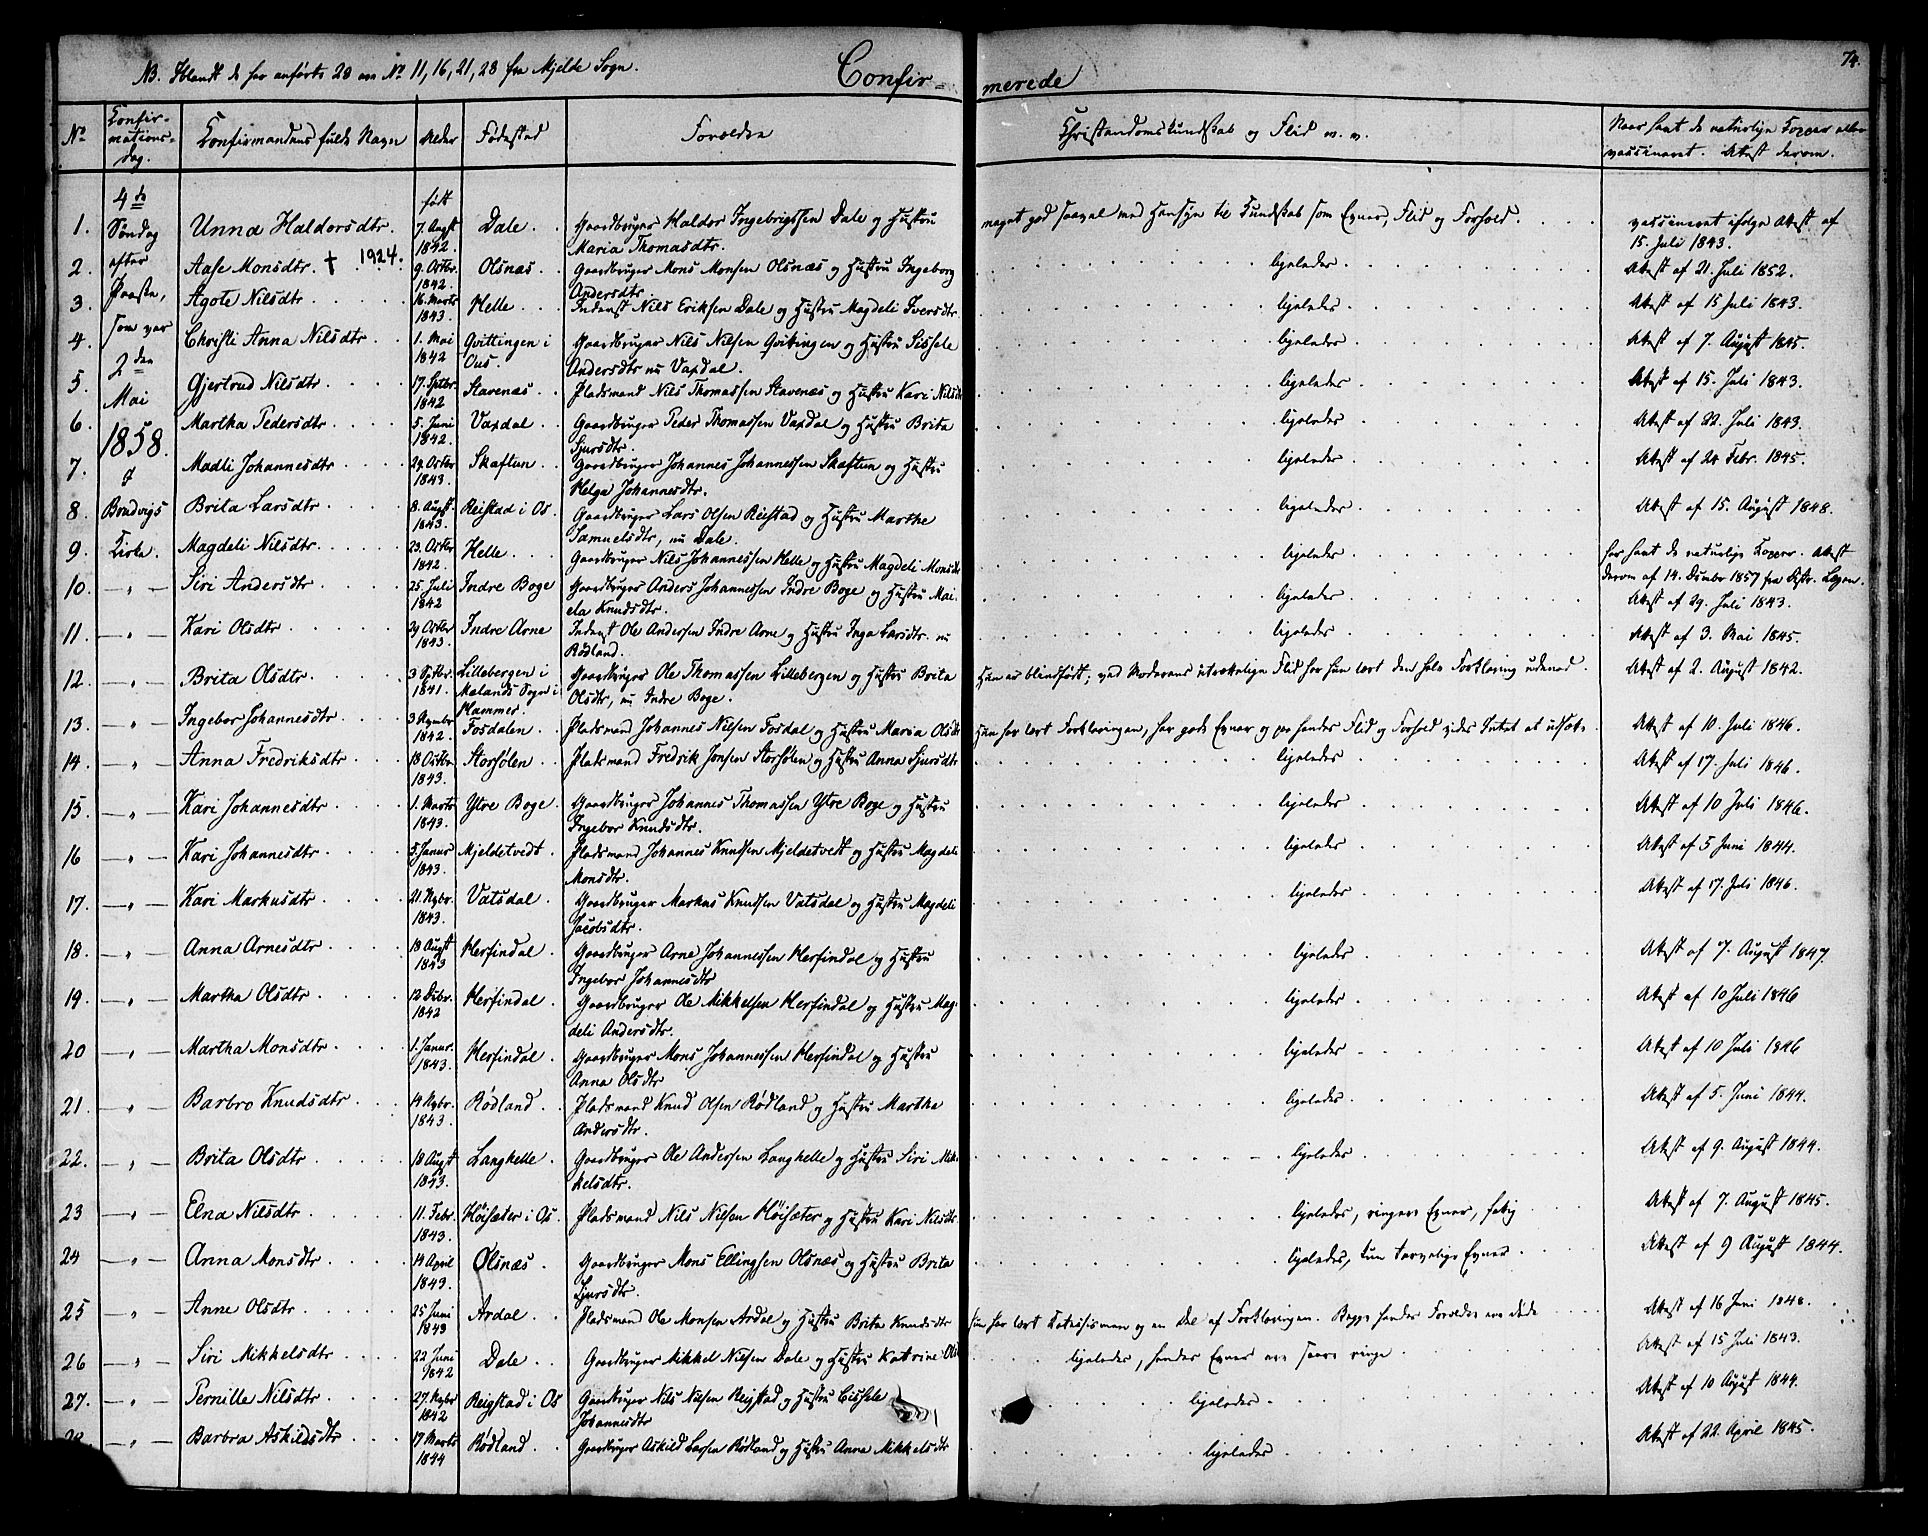 NB. Iblandt de her anførte 28 ere No 11, 16, 21, 28 fra Mjelde Sogn.
Confir- merede
74.
No
Confir-
mations-
dag.
Confirmandens fulde Navn
Alder
Fødested
Forældre
Christendomskundskab og Flid m. v.
Naar havt de naturlige Kopper eller
vaccineret. Attest derom.
4de
Søndag
efter
Paaske,
som var
2den
Mai
1858.
i
Bruvigs
Kirke.
født
1. Unna Haldorsdtr. 7. Augst 1842. Dale. Gaardbruger Haldor Ingebrigtsen Dale og Hustru
Maria Thomasdtr.
meget god saavel med Hensyn til Kundskab som Evner, Flid og Forhold.
vaccineret ifølge Attest af
15. Juli 1843.
2. Aase Monsdtr. † 1924. 9. Octbr. 1842. Olsnæs. Gaardbruger Mons Monsen Olsnæs og Hustru Ingeborg
Andersdtr. ligeledes Attest af 21. Juli 1852.
3. Agote Nilsdtr 16. Marts 1843. Helle. Inderst Nils Eriksen Dale og Hustru Magdeli Iversdtr. ligeledes Attest af 15 Juli 1843.
4. Christi Anna Nilsdtr 1. Mai 1842 Gvittingen i
Ous. Gaardbruger Nils Nilsen Gvitingen og Hustru Sissele
Andersdtr nu Vaxdal. ligeledes Attest af 7. August 1845.
5. Gjertrud Nilsdtr 17. Septbr. 1842 Stavenæs. Pladsmand Nils Thomassen Stavenæs og Hustru Kari Nilsdtr ligeledes Attest af 15. Juli 1843.
6. Martha Pedersdtr 5. Juni 1842. Vaxdal. Gaardbruger Peder Thomassen Vaxdal og Hustru Brita
Sjursdtr. ligeledes Attest af 22. Juli 1843.
7. Madli Johannesdtr 24. Octbr 1843. Skaftun. Gaardbruger Johannes Johannessen Skaftun og Hustru
Helga Johannesdtr. ligeledes Attest af 24 Febr. 1845.
8. Brita Larsdtr 8. Augst. 1843. Reistad i Os. Gaardbruger Lars Olsen Reistad og Hustru Marthe
Samuelsdtr, nu Dale. ligeledes Attest af 15. August 1848.
9. Magdeli Nilsdtr. 23. Octbr 1842. Helle. Gaardbruger Nils Johannessen Helle og Hustru Magdeli Monsdtr ligeledes har havt de naturlige Kopper. Attest
derom af 14. Decmbr 1857 fra Distr. Lægen.
10. Siri Andersdtr 25. Juli 1842 Indre Boge Gaardbruger Anders Johannessen Indre Boge og Hustru Mai-
ela Knudsdtr. ligeledes Attest af 29. Juli 1843.
11. Kari Olsdtr 29 Octbr 1843. Indre Arne Inderst Ole Andersen Indre Arne og Hustru Inga Larsdtr. nu
Rødland. ligeledes Attest af 3. Mai 1845.
12. Brita Olsdtr. 3 Septbr. 1841. Lillebergen i
Melands Sogn i
Hammer. Gaardbruger Ole Thomassen Lillebergen og Hustru Brita
Olsdtr, nu Indre Boge. Hun er blindfødt; ved Moderens utrættelige Flid har hun lært den hele Forklaring udenad. Attest af 2. August 1842.
13. Ingebor Johannesdtr 3 Nvmbr 1842. Fosdalen. Pladsmand Johannes Nilsen Fosdal og Hustru Maria Olsdtr Hun har lært Forklaringen, har gode Evner og paa hendes Flid og Forhold vides Intet at udsætte. Attest af 10. Juli 1846.
14. Anna Fredriksdtr 18 Octbr 1843. Storsølen. Pladsmand Fredrik Jonsen Storsølen og Hustru Anna Sjursdtr ligeledes Attest af 17. Juli 1846.
15. Kari Johannesdtr 1. Marts 1843. Ytre Boge. Gaardbruger Johannes Thomassen Ytre Boge og Hustru
Ingebor Knudsdtr. ligeledes Attest af 10 Juli 1846.
16 Kari Johannesdtr 5. Januar 1843. Mjeldetvedt. Pladsmand Johannes Knudsen Mjeldetvedt og Hustru Magdeli
Monsdtr. ligeledes Attest af 5 Juni 1844.
17. Kari Markusdtr 21. Nvbr. 1843. Vatsdal. Gaardbruger Markus Knudsen Vatsdal og Hustru Magdeli
Jacobsdtr. ligeledes Attest af 17. Juli 1846.
18. Anna Arnesdtr 18 Augst 1843 Herfindal. Gaardbruger Arne Johannessen Herfindal og Hustru
Ingebor Johannesdtr ligeledes Attest af 7. August 1847.
19. Martha Olsdtr 12 Decbr. 1842 Herfindal. Gaardbruger Ole Mikkelsen Herfindal og Hustru Mag-
deli Andersdtr. ligeledes Attest af 10 Juli 1846
20 Martha Monsdtr 1. Januar. 1843. Herfindal. Gaardbruger Mons Johannessen Herfindal og Hustru
Anna Olsdtr ligeledes Attest af 10 Juli 1846
21. Barbro Knudsdtr 14 Nvbr. 1843. Rødland. Pladsmand Knud Olsen Rødland og Hustru Martha
Andersdtr. ligeledes Attest af 5. Juni 1844.
22. Brita Olsdtr 18 Augst 1843. Langhelle. Gaardbruger Ole Andersen Langhelle og Hustru Siri Mik-
kelsdtr. ligeledes Attest af 9. August 1844.
23 Elna Nilsdtr 11. Febr. 1843. Høisæter i Os. Pladsmand Nils Nilsen Høisæter og Hustru Kari Nilsdtr. ligeledes, ringere Evner, Attest af 7. August 1845.
24 Anna Monsdtr 14 April 1843. Olsnæs. Gaardbruger Mons Ellingsen Olsnæs og Hustru Brita
Sjursdtr. ligeledes, kun tarvelige Evner Attest af 9 August 1844.
25 Anne Olsdtr 25 Juni 1843 Ardal. Pladsmand Ole Monsen Ardal og Hustru Brita Knudsdtr hun har lært Katechismen og en Del af Forklaringen. Begge hendes Forældre ere døde Attest af 16 Juni 1848.
26 Siri Mikkelsdtr 22 Juni 1842 Dale. Gaardbruger Mikkel Nilsen Dale og Hustru Katrine ligeledes, hendes Evner ere saare ringe. Attest af 15 Juli 1843.
27. Pernille Nilsdtr 27. Nvbr 1842 Reigstad i Os Gaardbruger Nils Nilsen Reigstad og Hustru Cissele
Johannesdtr ligeledes. Attest af 10 August 1844.
28 Barbra Askildsdtr 17 Marts 1844 Rødland. Gaardbruger Askild Larsen Rødland og Hustru Anna Mikkelsdtr ligeledes Attest af 22. April 1845.